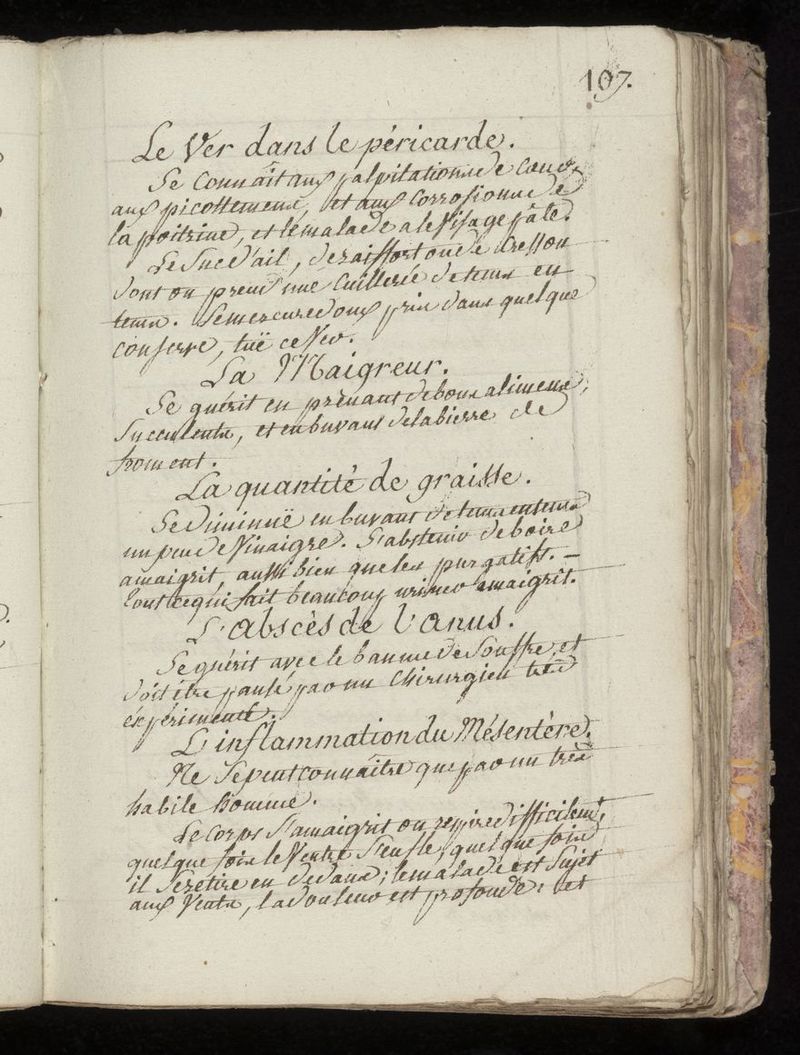 107.
Le Ver dans le péricarde.
Se connaît aux palpitations de Coeur,
aux picottemens, et aux corrosions de
la poitrine, et le malade a le Visage pâle.
Le Suc d'ail, de raiffort ou de Cresson
dont on prend une Cuillerée de tems en
tems. Le mercure doux pris dans quelque
conserve, tuë ce Ver.
La Maigreur.
Se guérit en prenant de bons alimens,
Succulents, et en buvant de la bierre de
froment.
La quantité de graisse.
Se Diminuë en buvant de tems en tems
un peu de Vinaigre. S'abstenir de boire
amaigrit, aussi bien que les purgatifs. —
tout ce qui fait beaucoup uriner amaigrit.
L'abscès de l'anus.
Se guérit avec le baume de Souffre, et
doit être pansé par un Chirurgien très
expérimenté.
L'inflammation du Mésentère.
Ne Se peut connaître que par un très
habile homme.
Le Corps S'amaigrit on respire difficilemt,
quelque fois le Ventre S'enfle, quelque fois
il Se rétire en dedans; le malade est Sujet
aux Vents, la douleur est profonde; et